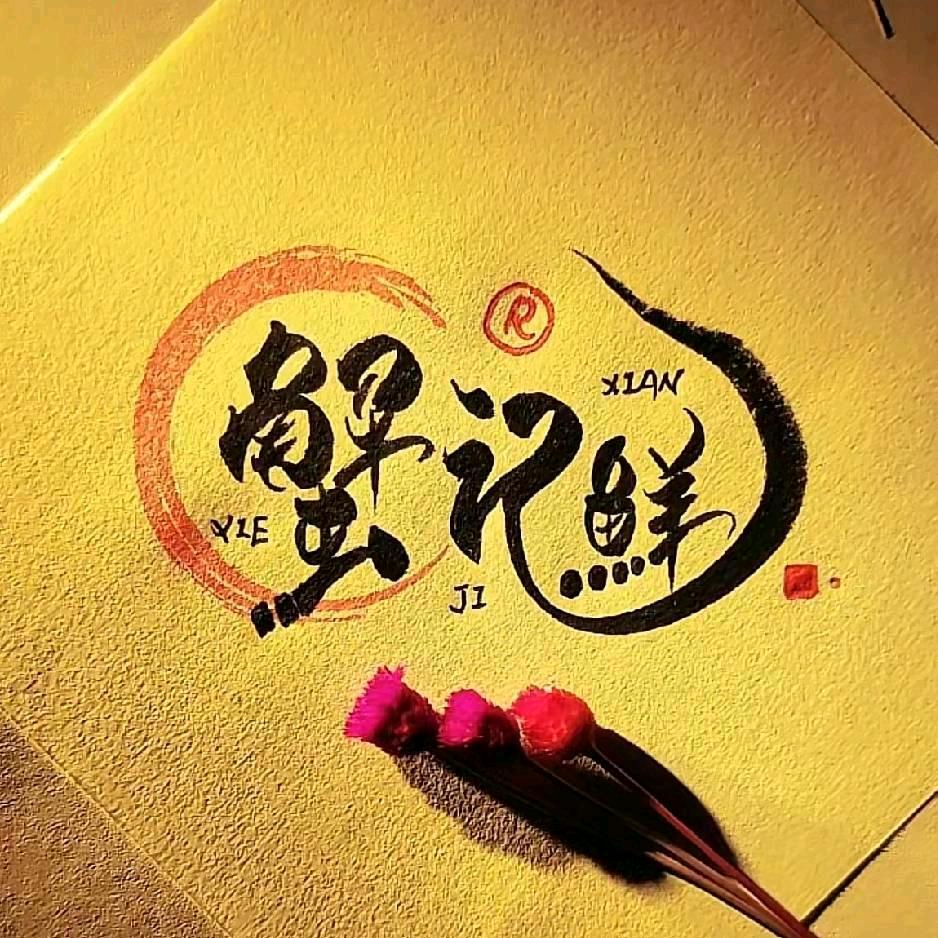 ®
蟹记鲜
XIE
JI
XIAN